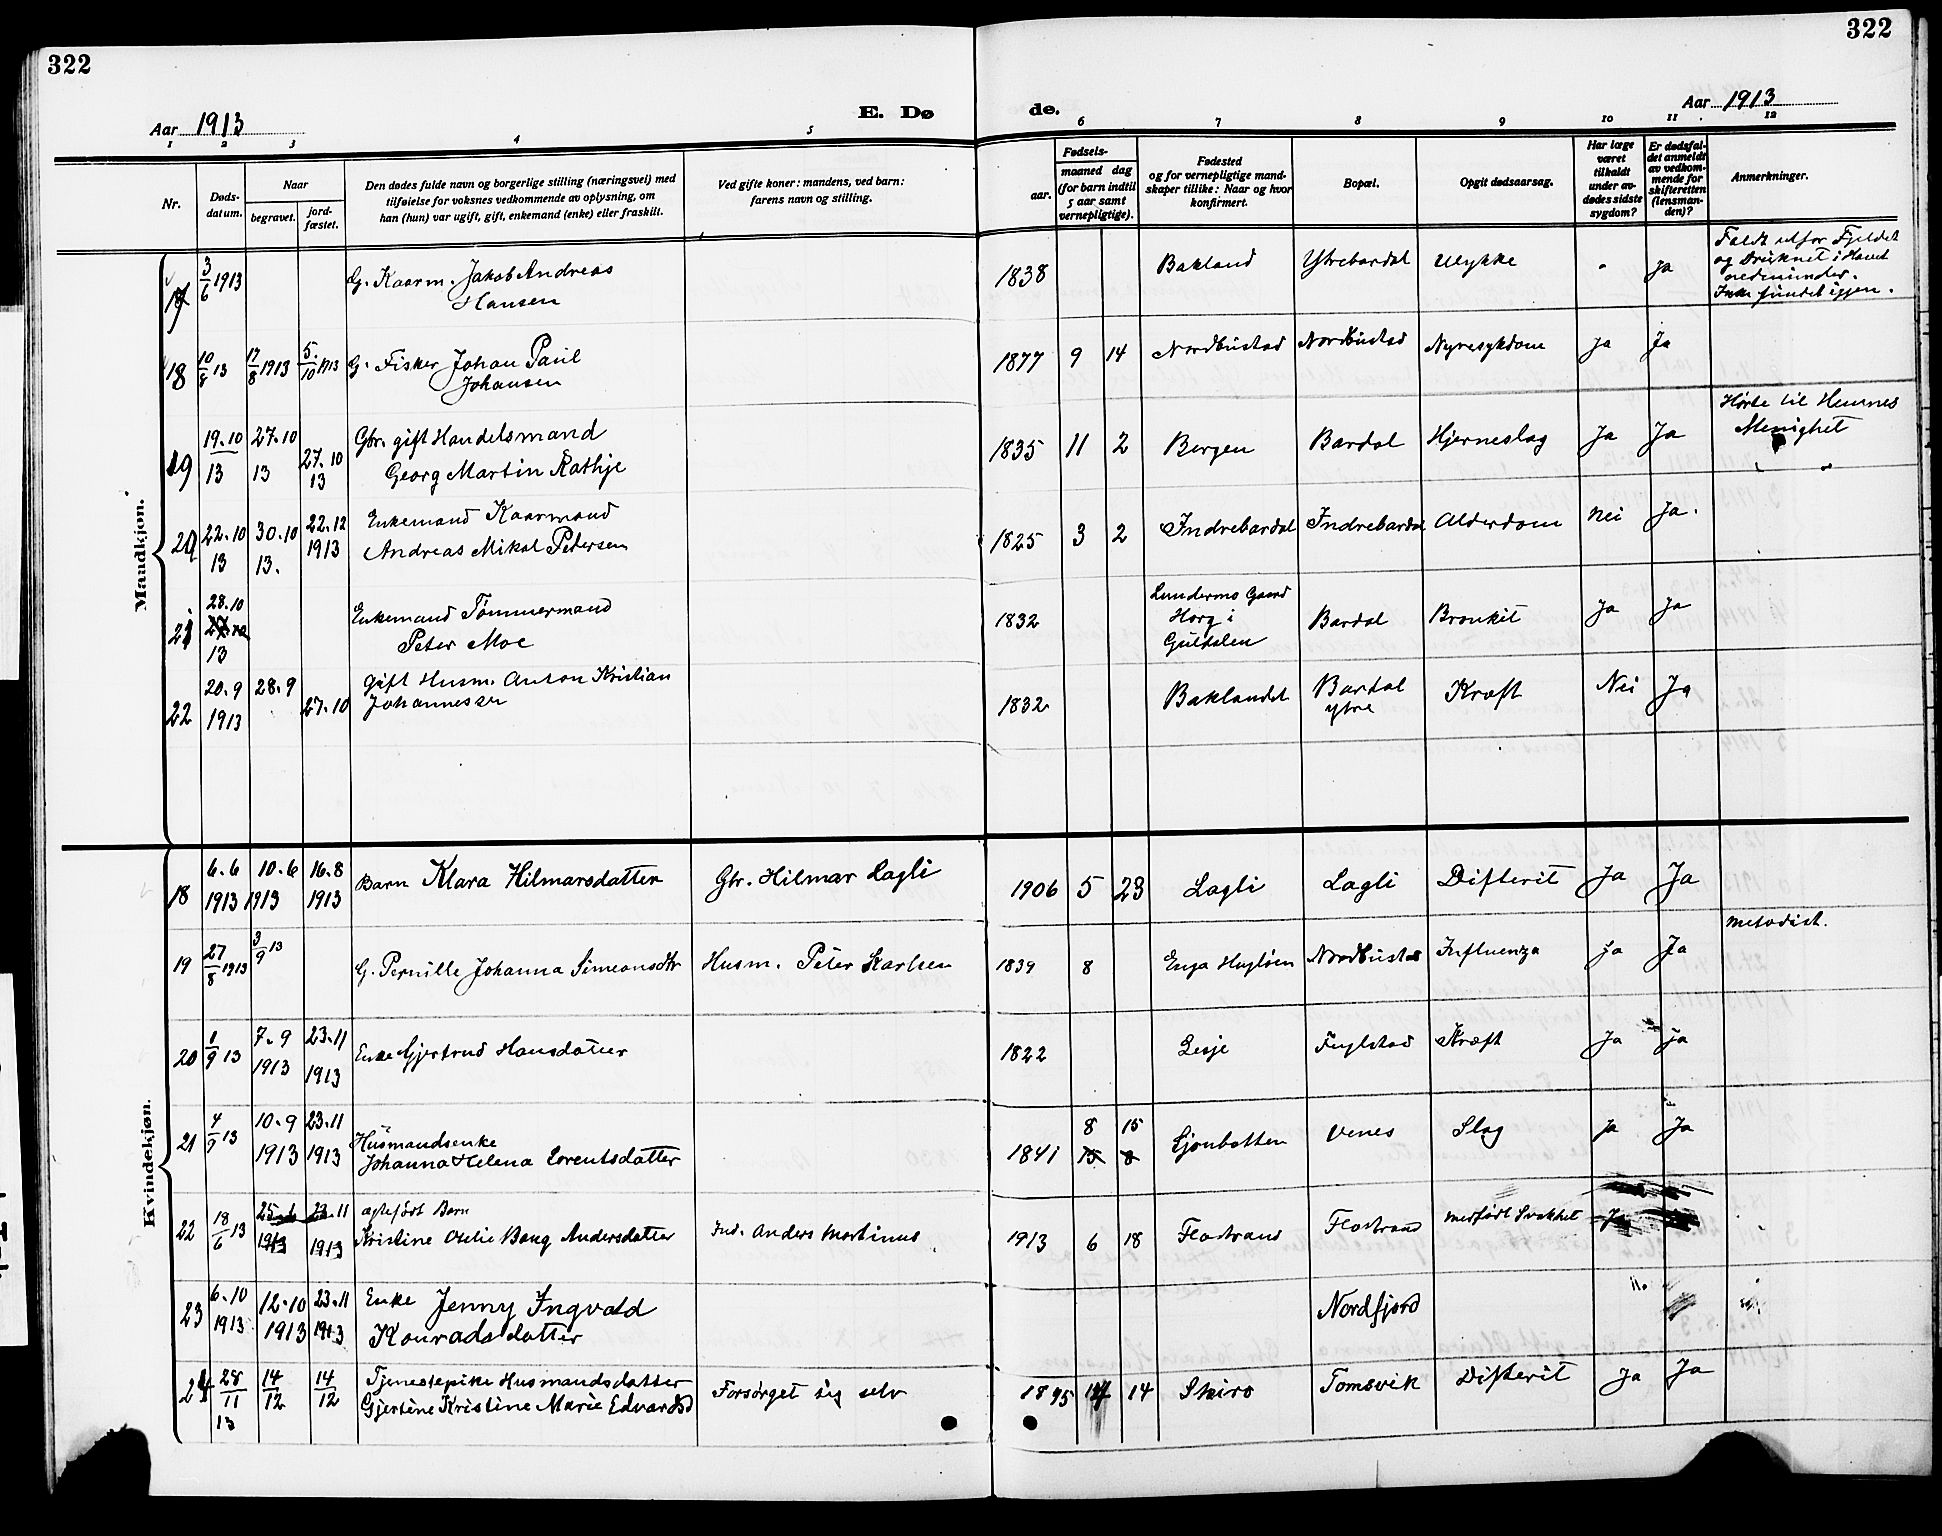 322
322
Aar 1913
E. Dø
de.
Aar 1913
1 2 3 4 5 6 7 8 9 10 11 12
Nr.
Døds-
datum.
Naar
begravet.
jord-
fæstet.
Den dødes fulde navn og borgerlige stilling (næringsvei) med
tilføielse for voksnes vedkommende av oplysning, om
han (hun) var ugift, gift, enkemand (enke) eller fraskilt.
Ved gifte koner: mandens, ved barn:
farens navn og stilling.
Fødsels-
aar.
maaned dag
(for barn indtil
5 aar samt
vernepligtige).
Fødested
og for vernepligtige mand-
skaper tillike: Naar og hvor
konfirmert.
Bopæl.
Opgit dødsaarsag.
Har læge
været
tilkaldt
under av-
dødes sidste
sygdom?
Er dødsfal-
det anmeldt
av vedkom-
mende for
skifteretten
(lensman-
den)?
Anmerkninger.
Mandkjøn.
17 3/6 1913 G. Kaarm. Jakob Andreas
Hansen
1838 Bakland Ytrebardal Ulykke - ja
Faldt utfor Fjeldet
og Druknet i Havet
nedenunder.
Ikke fundet igjen.
18 10/8 13 17/8 1913 5./10 1913 G. Fisker Johan Paul
Johansen
1877 9 14 Nordbustad Nordbustad Nyresykdom ja Ja
19 19.10 13 27.10 13 27.10 13 Gbr. gift Handelsmand
Georg Martin Rathje
1835 11 2 Bergen Bardal Hjerneslag Ja Ja
Hørte til Hemnes
Menighet
20 22.10 13 30.10 13. 22.12 1913 Enkemand Kaarmand
Andreas Mikal Petersen
1825 3 2 Indrebardal Indrebardal Alderdom Nei Ja.
21 28.10 13 Enkemand Tømmermand
Peter Moe
1832 Lundermo Gaard
Horg i
Guldalen
Bardal Bronkit Ja Ja
22 20.9 1913 28.9 27.10 Gift Husm. Anton Kristian
Johannessen
1832 Baklandet Bardal
ytre
Kræft Nei Ja
Kvindekjøn.
18 6.6 1913 10.6 1913 16.8 1913 Barn Klara Hilmarsdatter Gbr. Hilmar Lagli
1906 5 23 Lagli Lagli Difterit Ja Ja
19 27/8 1913 3/9 13 G. Pernille Johanna Simeonsdtr Husm. Peter Karlsen
1839 8 Enga Hugløen Nordbustad Influenza ja Ja
Metodist.
20 1/9 13 7.9 1913 23.11 1913 Enke Gjertrud Hansdatter
1822 Lesje Fuglstad Kræft Ja ja
21 4/9 13 10.9 1913 23.11 1913 Husmandsenke
Johanna Helena Lorentsdatter
1841 8 15
15 8
Sjonbotten Venes Slag ja Ja
22 18/6 13 25.6 1913 23.11 1913 Ægtefødt Barn
Kristine Otelie Bang Andersdatter Ind. Anders Martinus
1913 6 18 Flostrand Flostrand Medfødt Svakhet Ja
23 6.10 1913 12.10 1913 23.11 1913 Enke Jenny Ingvald
Konradsdatter
Nordfjord
24 28/11 13 14/12 14/12 Tjenestepike Husmandsdatter
Gjertine Kristine Marie Edvardsd Forsørget sig selv
1895 14 Skiro Tomsvik Difterit Ja Ja